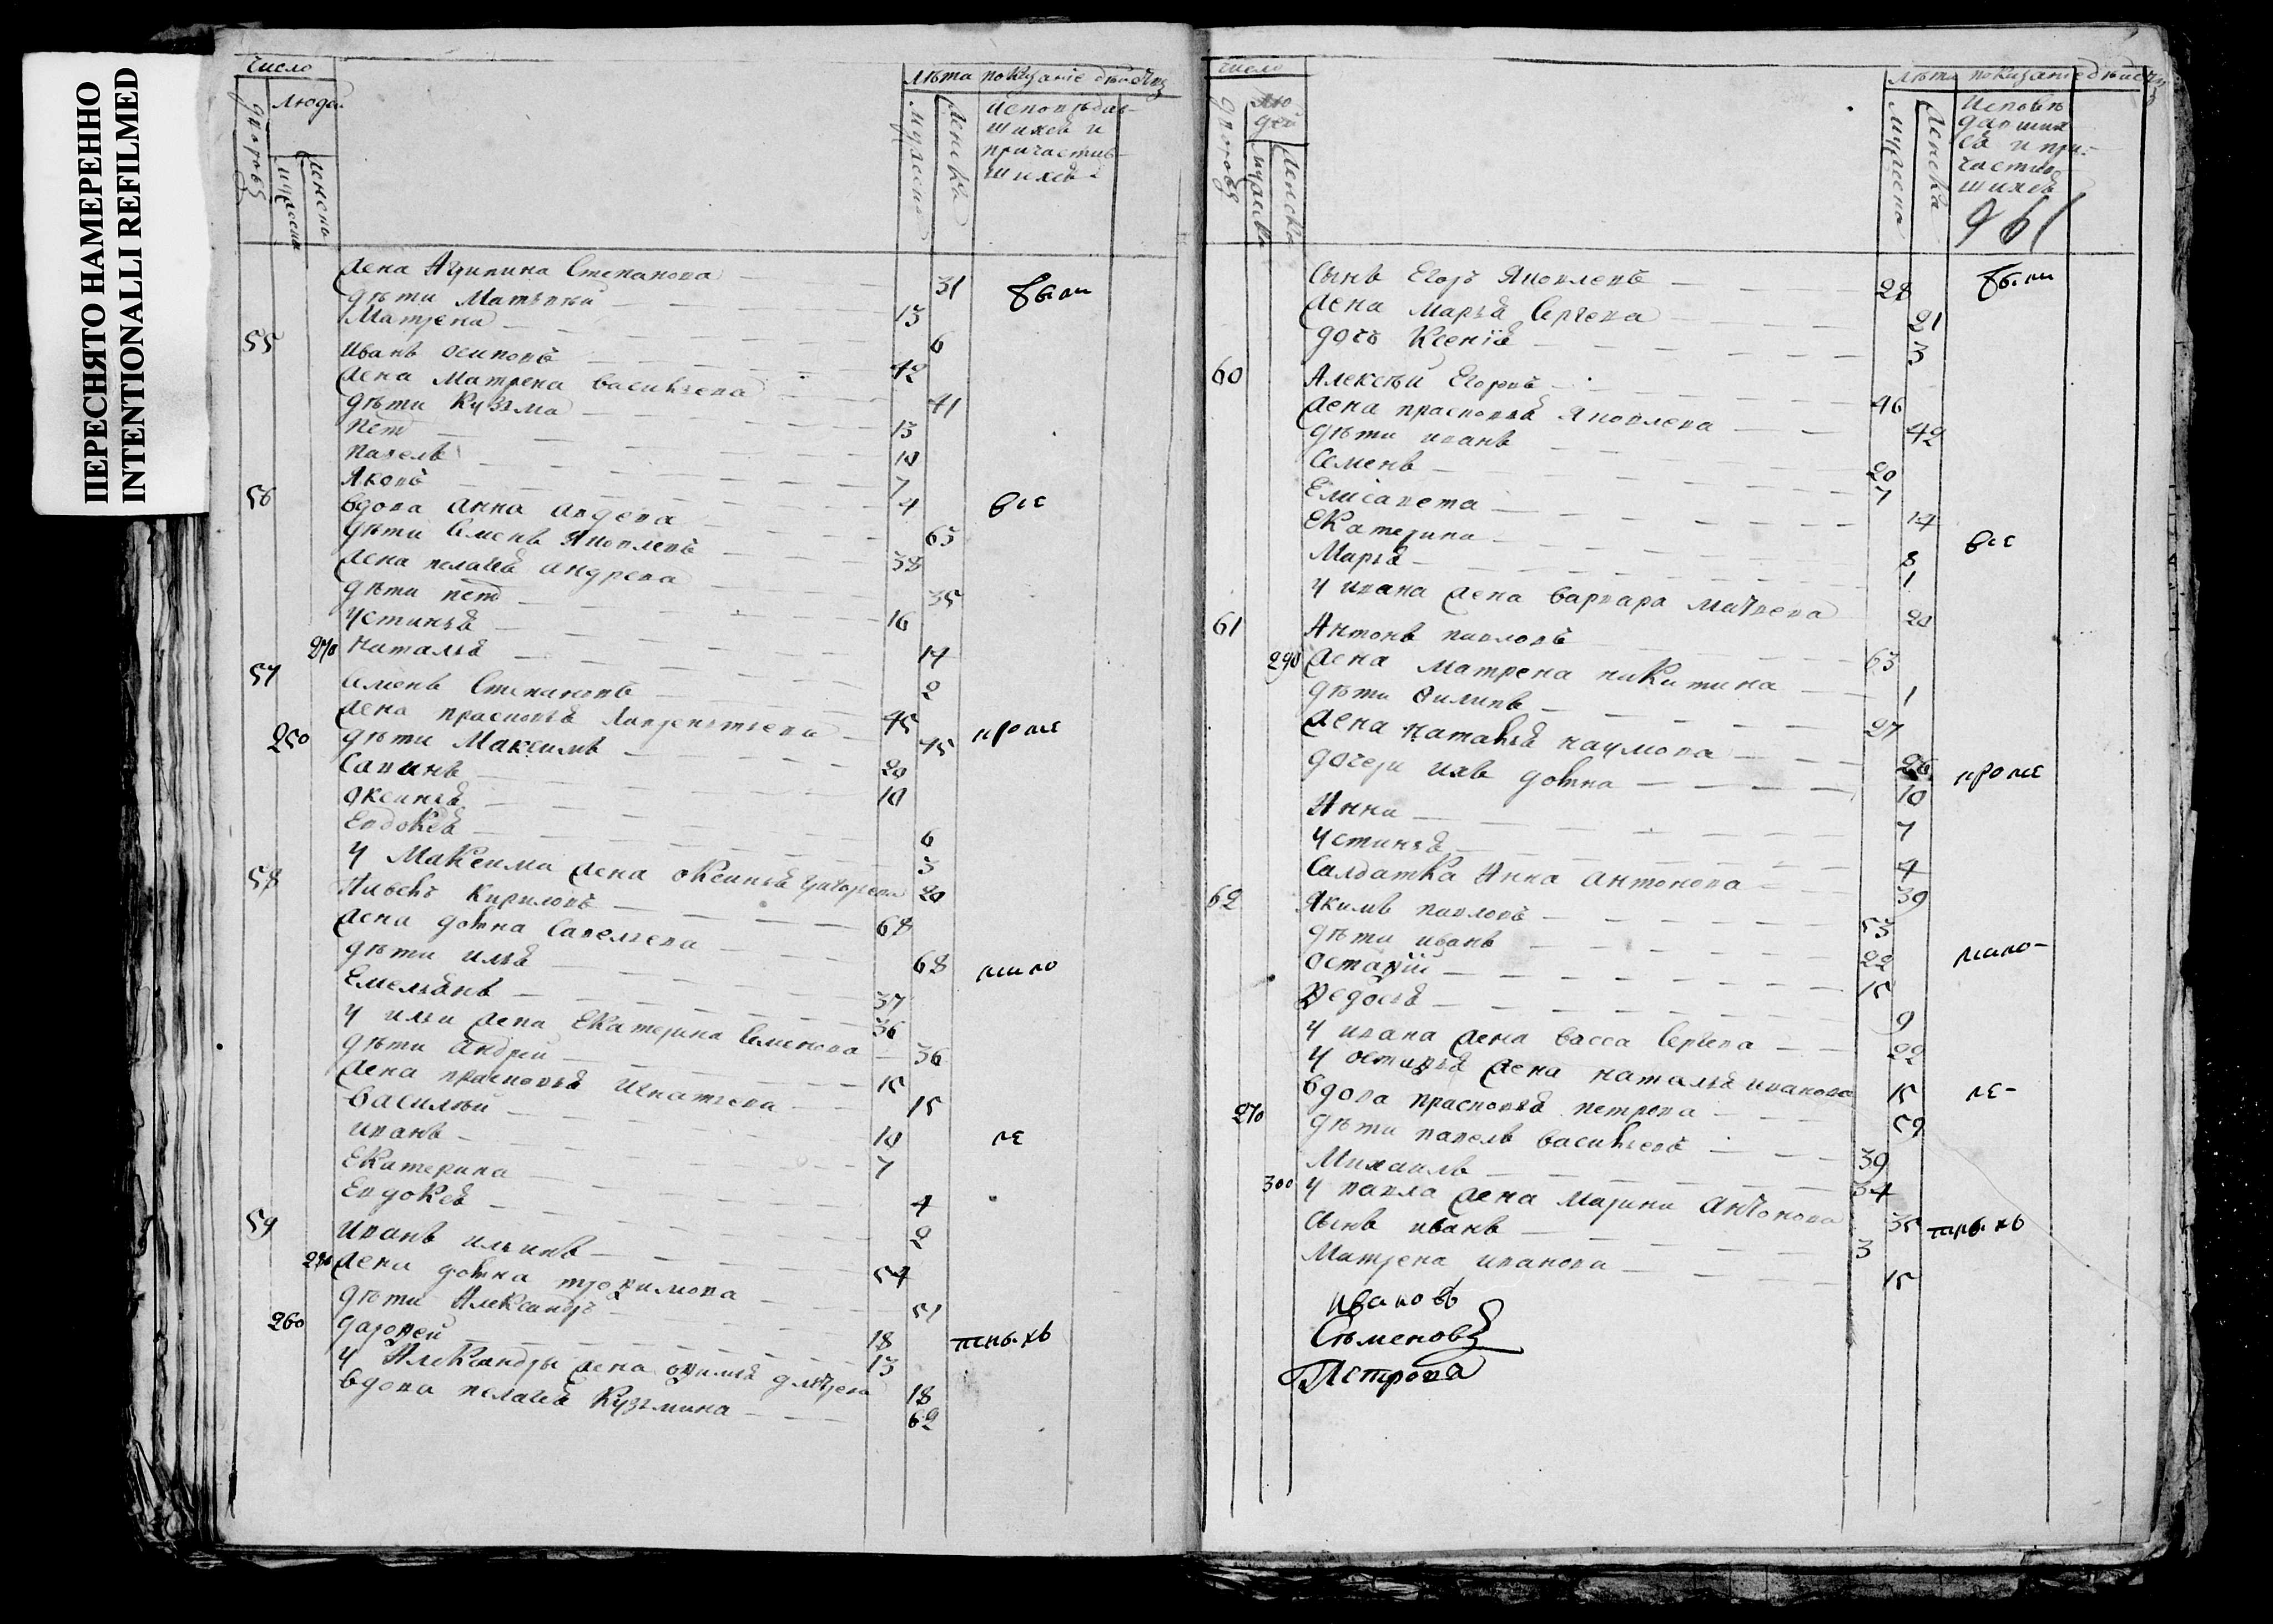 ПЕРЕСНЯТО НАМЕРЕННО
INTENTIONALLI REFILMED
число
людей
дворовъ
мужеска
женска
лѣта
показаніе дѣйств
мужеска
женска
исповѣдав-
шихся и
причастив-
шихся
жена Агрипина Степанова 31 были
дѣти Матвѣй 13
Матрена 6
55 Иванъ Осиповъ 42
жена Матрена Васильева 41
дѣти Кузьма 13
Петръ 10
Павелъ 7
Яковъ 4 все
56 вдова Анна Авдева 65
дѣти Семенъ Яковлевъ 38
жена Пелагея Андрева 35
дѣти Петръ 16
Устинья 14
270 Наталья 2
57 Семенъ Степановъ 45
жена Прасковья Лаврентьева 45 кроме
250 дѣти Максимъ 20
Савинъ 10
Оксинья 6
Евдокея 3
у Максима жена Оксинья Григорева 20
58 Ильенъ Кириловъ 68
жена Фотина Савельева 68 мало
дѣти Илья 37
Емельянъ 36
у Ильи жена Екатерина Семенова 36
дѣти Андрей 15
жена Прасковья Игнатьева 15
Василѣй 10 ле
Иванъ 7
Екатерина 4
Евдокея 2
59 Иванъ Ильинъ 54
280 жена Фотина Трофимова 51
дѣти Александръ 18
260 Дорофей 13 тныхъ
у Александры жена Офимья 18
вдова Пелагея Кузьмина 62
число
людей
дворовъ
мужеска
женска
лѣта
показаніе дѣйств
мужеска
женска
исповѣ
давших
ся и при-
частив
шихся
961
сынъ Егоръ Яковлевъ 28 были
жена Марья Сергева 21
дочь Ксенія 3
60 Алексѣй Егоровъ 46
жена Прасковья Яковлева 42
дѣти Иванъ 20
Семенъ 7
Елисавета 14
Екатерина 8 все
Марья 1
у Ивана жена Варвара Матвева 20
61 Антонъ Павловъ 63
290 жена Матрена Никитина 1
дѣти Филипъ 27
жена Наталья Наумова 26
дочери ихъ Фотина 10 кроме
Анна 7
Устинья 4
Салдатка Анна Антонова 39
62 Якимъ Павловъ 53
дѣти Иванъ 22 мало-
Остафій 15
Федосья 9
у Ивана жена Васса Сергева 22
у Остафья жена Наталья Иванова 15 ле-
вдова Прасковья Петрова 59
270 дѣти Павелъ Васильевъ 39
Михаилъ 34
300 у Павла жена Марина Антонова 35 тныхъ
сынъ Иванъ 3
Матрена Иванова 15
Ивановъ
Сѣменовъ
Петрова